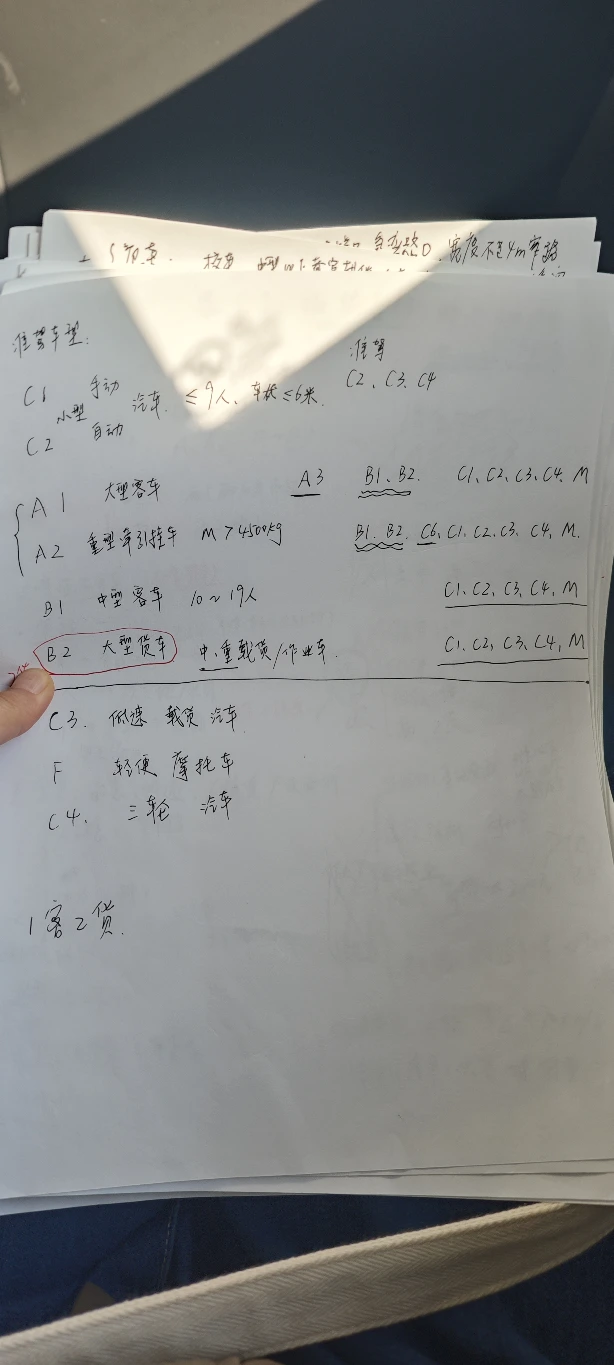 宽度不足4m 窄路
准驾车型: 准驾
C1 手动 小型 汽车. ≤9人、车长≤6米. C2、C3、C4
C2 自动
A1 大型客车 A3 B1、B2. C1、C2、C3、C4、M
A2 重型牵引挂车 M>4500kg B1、B2、C6、C1、C2、C3、C4、M.
B1 中型客车 10~19人 C1、C2、C3、C4、M
B2 大型货车 中、重载货/作业车. C1、C2、C3、C4、M
C3. 低速 载货 汽车
F 轻便 摩托车
C4. 三轮 汽车
1客2货.